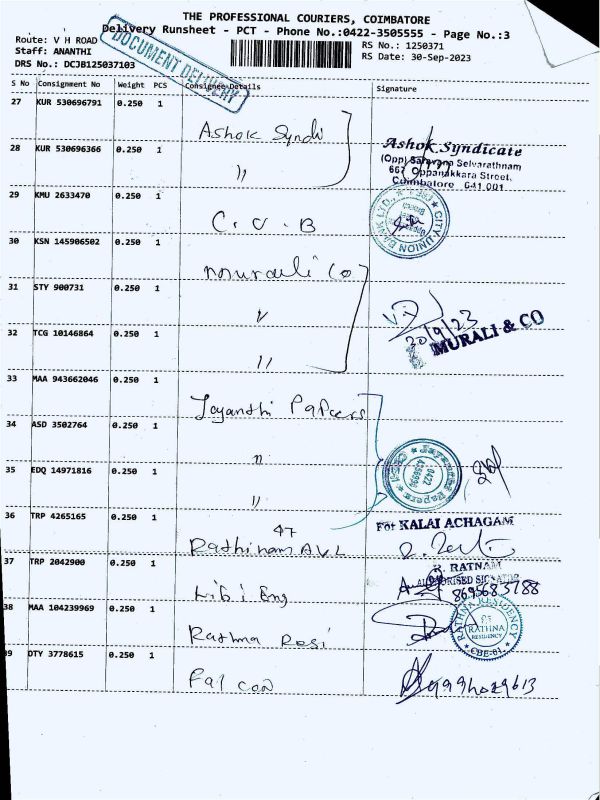 THE PROFESSIONAL COURIERS, COIMBATORE
Delivery Runsheet - PCT - Phone No.:0422-3505555 - Page No.:3
Route: V H ROAD
RS No.: 1250371
Staff: ANANTHI
RS Date: 30-Sep-2023
DRS No.: DCJB125037103
DOCUMENT DELIVERY
S No Consignment No Weight PCS Consignee Details Signature
27 KUR 530696791 0.250 1 Ashok Syndi
28 KUR 530696366 0.250 1 "
Ashok Syndicate
(Opp) Saravana Selvarathnam
667 Oppanakkara Street,
Coimbatore 641 001
29 KMU 2633470 0.250 1 C.U.B
CITY UNION BANK LTD.,
30 KSN 145906502 0.250 1 Murali Co
31 STY 900731 0.250 1 "
MURALI & CO
32 TCG 10146864 0.250 1 "
33 MAA 943662046 0.250 1 Jayanthi Papers
34 ASD 3502764 0.250 1 "
35 EDQ 14971816 0.250 1 "
0422
36 TRP 4265165 0.250 1 47
For KALAI ACHAGAM
37 TRP 2042900 0.250 1
R. RATNAM
AUTHORISED SIGNATOR
8695685788
38 MAA 104239969 0.250 1 Rathna Resi
RATHNA RESIDENCY
RATHNA
RESIDENCY
CBE-01
39 DTY 3778615 0.250 1 Falcon